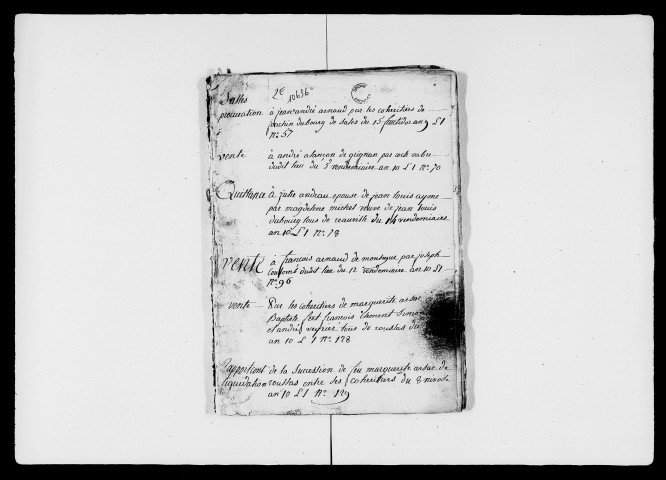 2E 10636
Salles
procuration à jean andré arnaud par les coheritiers de
dubourg de sales du 15 fructidor an 9 L 1
n° 57
vente à andré alançon de grignan par
dudit lieu du 5 vendemiaire an 10 L 1 n° 70
Quittance à julie andrau epouse de jean louis ayme
par magdeleine michel veuve de jean louis
dubourg tous de reauville du 14 vendemiaire
an 10 L 1 n° 78
vente à françois arnaud de montsegur par joseph
dudit lieu du 12 vendemiaire an 10 L 1
n° 96
vente Par les coheritiers de marguerite assac à
Baptiste et françois Clement
et andré veyrier tous de roussas du
an 10 L 1 n° 128
Rapport de la sucession de feu marguerite assac de
liquidation roussas entre ses coheritiers du 8 nivose
an 10 L 1 n° 129